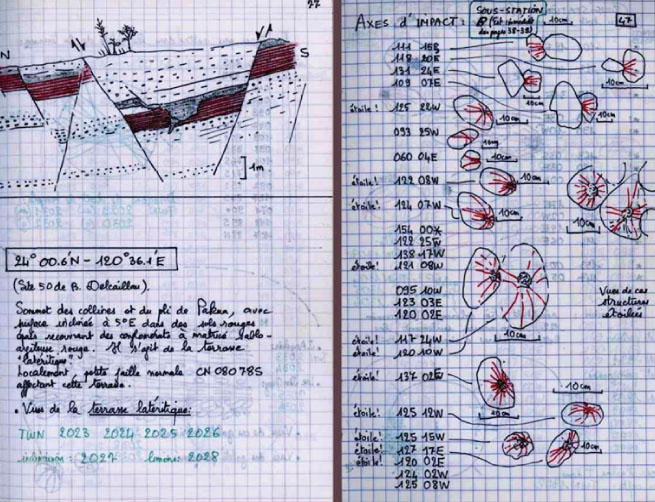 N
S
1m
24° 00.6'N - 120° 36.1'E
(Site 50 de B. Delcaillau).
Sommet des collines et du pli de Pakua, avec
surface inclinée à 5°E dans des sols rouges
recouvrant des conglomérats à matrice sablo-
argileuse rouge. Il s'agit de la terrasse
"latéritique".
Localement, petite faille normale CN 080 78S
affectant cette terrasse.
• Vues de la terrasse latéritique:
TWN 2023 2024 2025 2026
: 2027 : 2028
AXES d'IMPACT:
SOUS-STATION
des pages 38-39)
47
111 15E
118 20E
131 24E
109 07E
étoile! 125 22W
093 25W
060 04E
étoile! 122 08W
étoile! 124 07W
154 00X
122 25W
138 17W
étoile! 121 08W
095 10W
123 03E
120 02E
étoile! 117 24W
étoile! 120 10W
étoile! 137 02E
étoile! 125 12W
étoile! 125 15W
étoile! 127 17E
étoile! 120 02E
124 02W
125 08W
10cm
10cm
10cm
10cm
10cm
10cm
10cm
10cm
10cm
10cm
10cm
10cm
Vues de ces
structures
étoilées
10cm
10cm
10cm
10cm
10cm